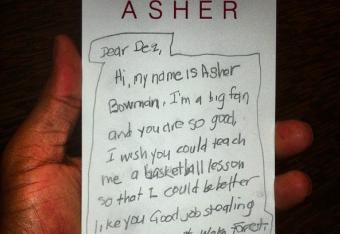 ASHER
Dear Dez,
Hi, my name is Asher
Bowman, I'm a big fan
and you are so good,
I wish you could teach
me a basketball lesson
so that I could be better
like you Good job stealing
Wake Forest.